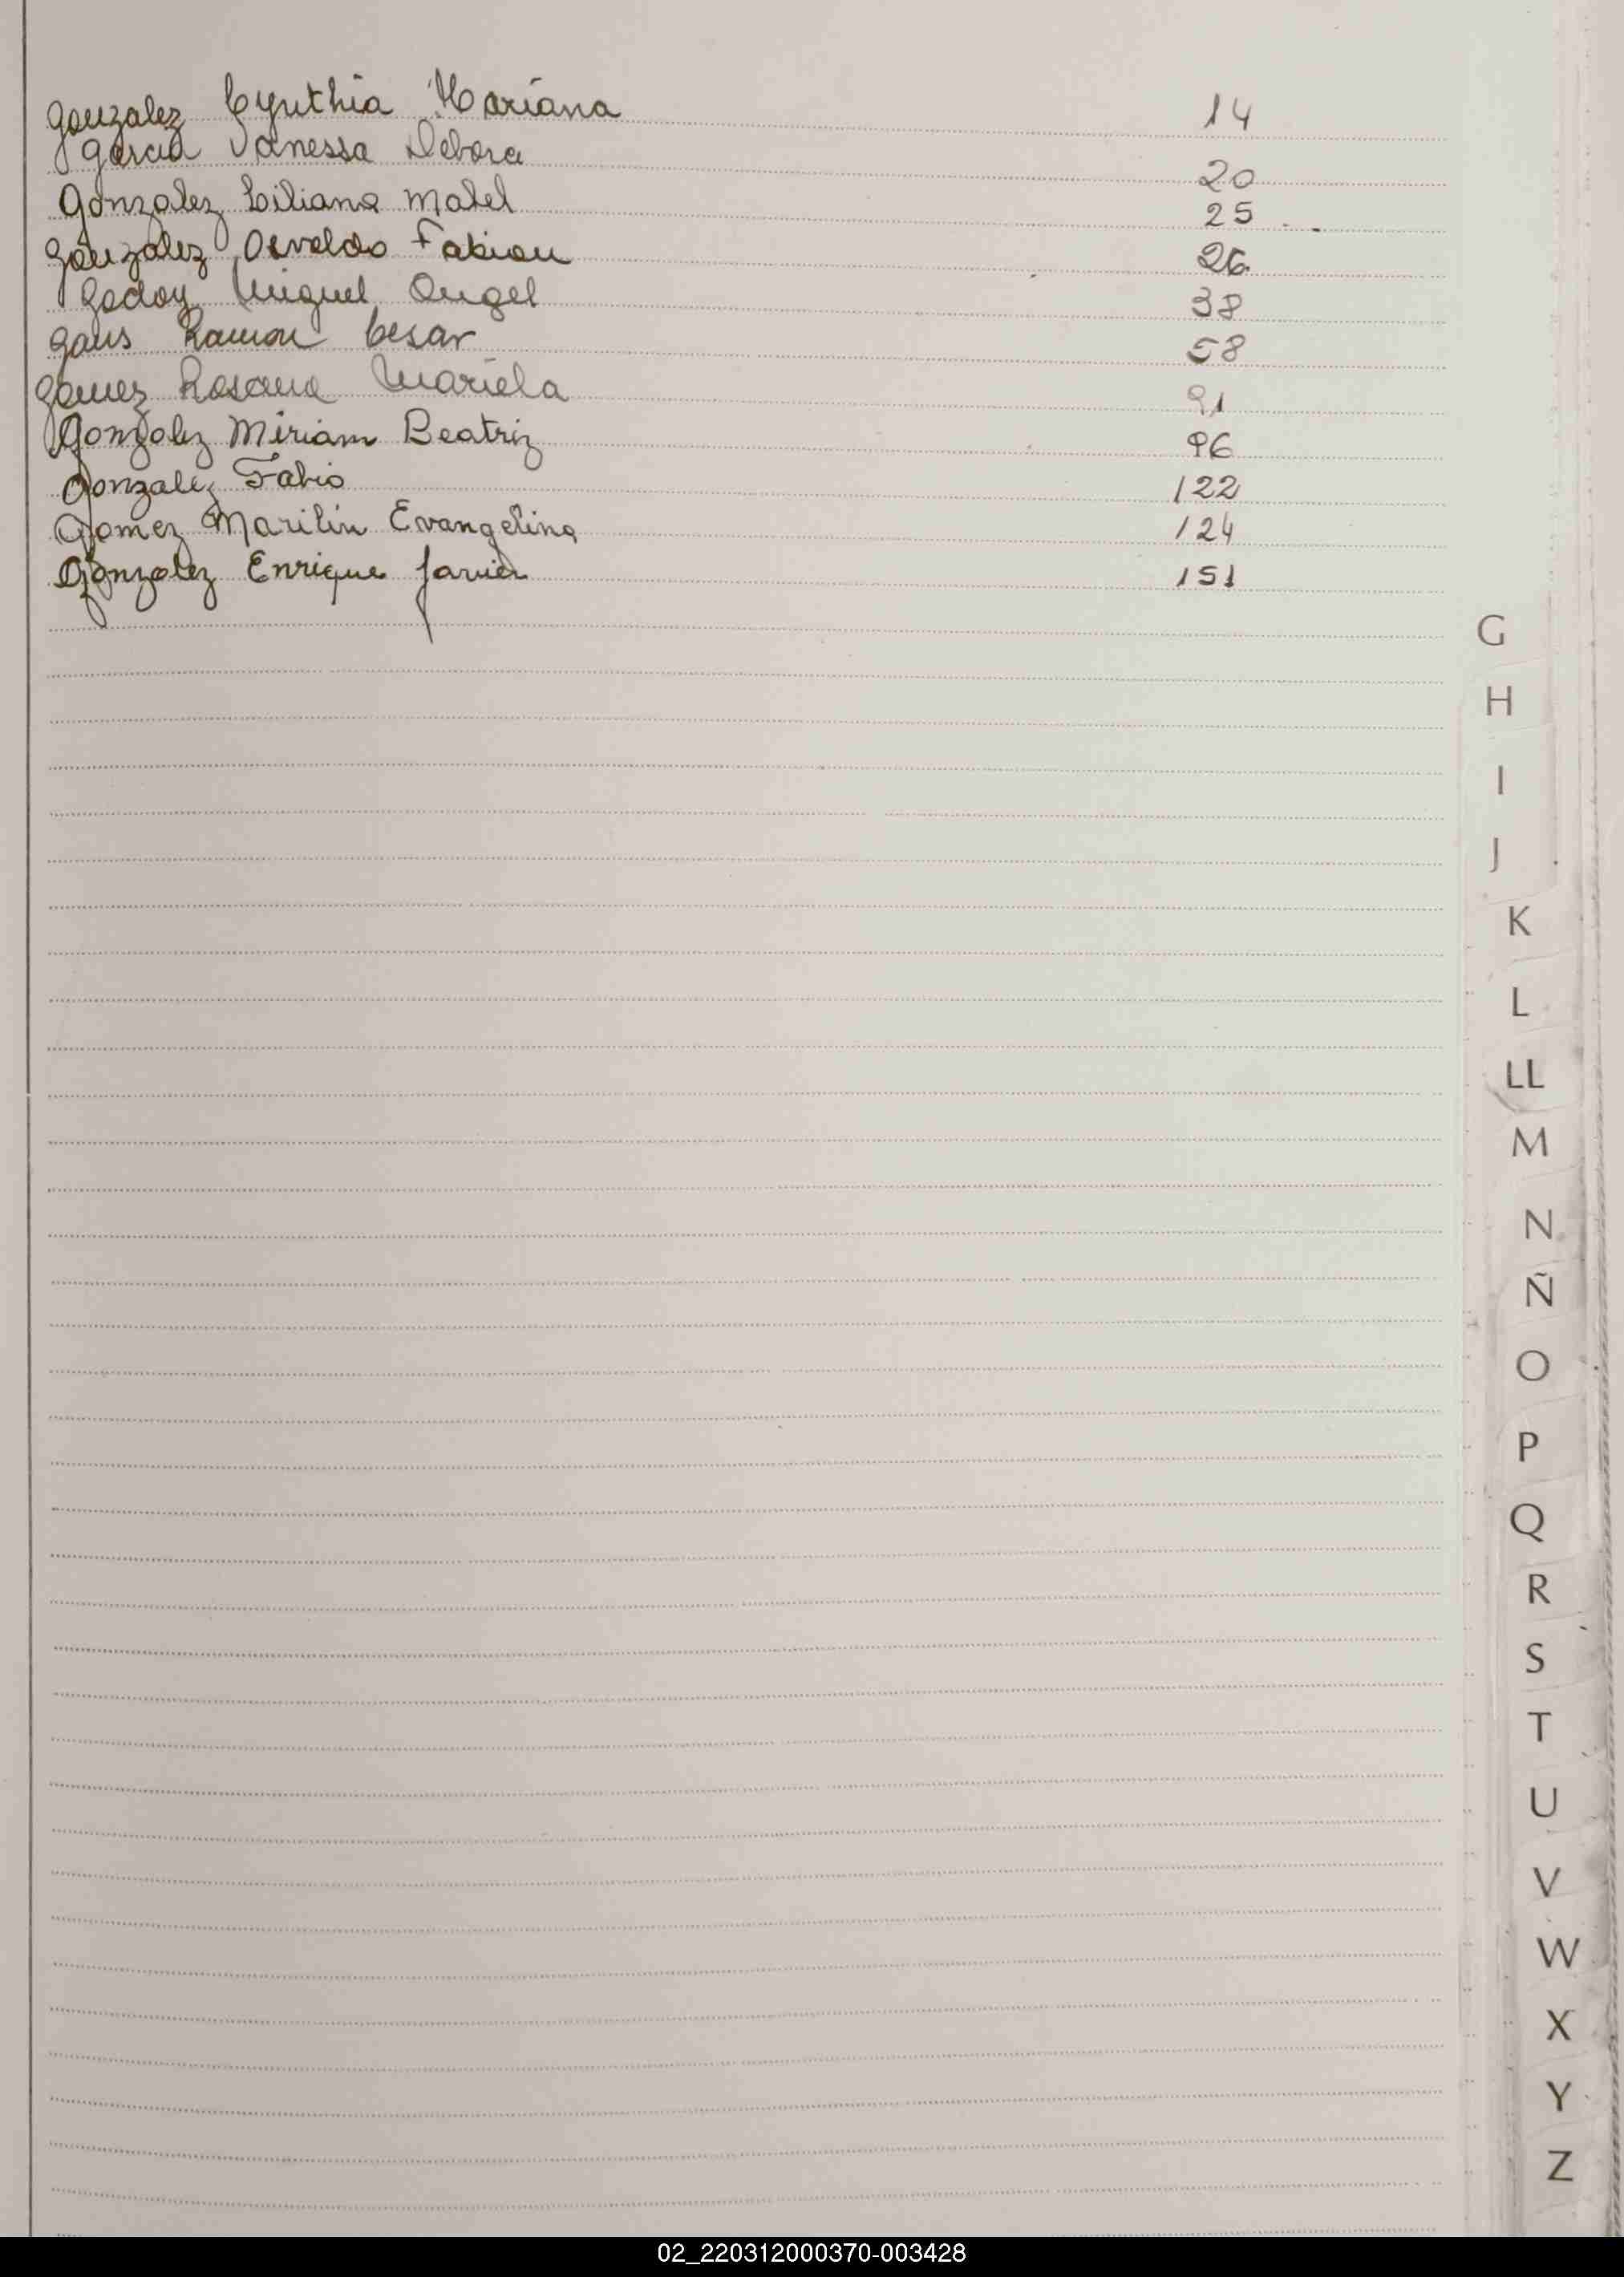 Gonzalez Cynthia Mariana 14
Garcia Vanessa Debora 20
Gonzalez Liliana Mabel 25
Gonzalez Osvaldo Fabian 26
Godoy Miguel Angel 38
Gaus Ramon Cesar 58
Gomez Rosana Mariela 91
Gonzalez Miriam Beatriz 96
Gonzalez Fabio 122
Gomez Marilin Evangelina 124
Gonzalez Enrique Javier 151
G
H
I
J
K
L
LL
M
N
Ñ
O
P
Q
R
S
T
U
V
W
X
Y
Z
02_220312000370-003428